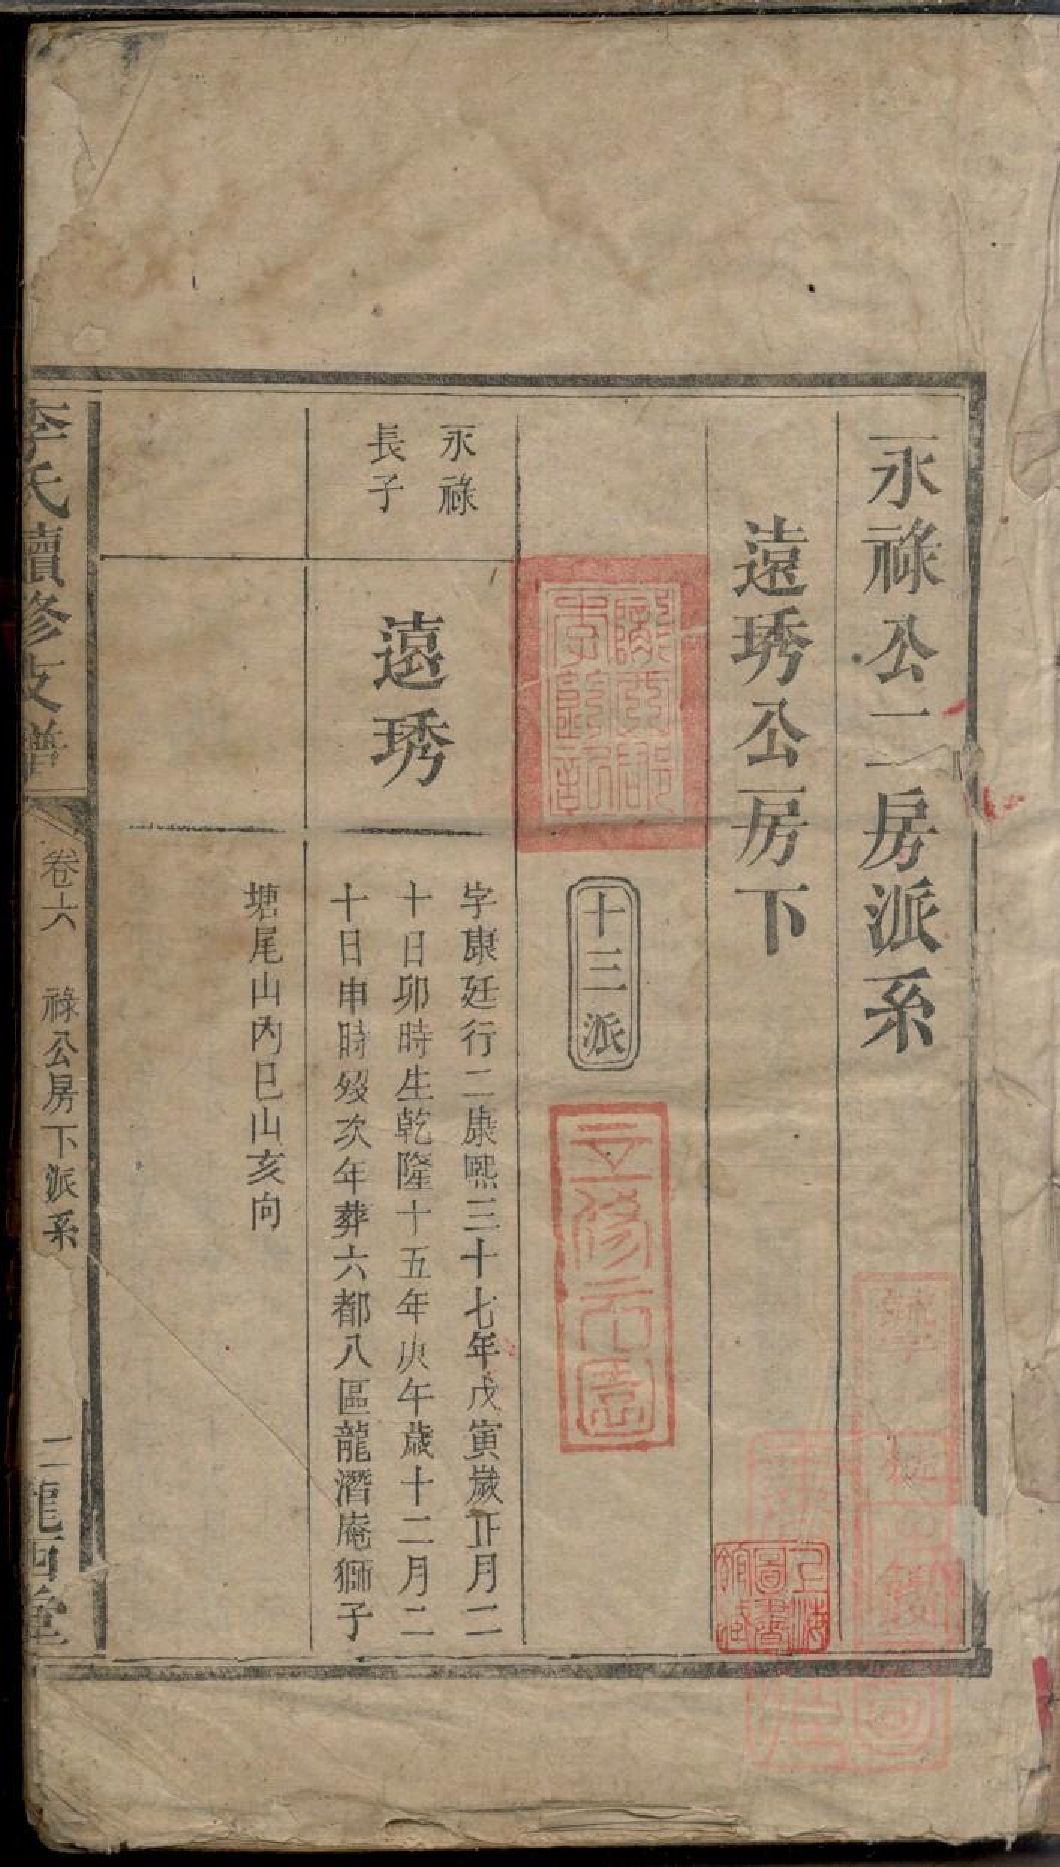 永祿公二房派系
遠琇公房下
十三派
永祿
長子
遠琇
字康廷行二康熙三十七年戊寅歲正月二
十日卯時生乾隆十五年庚午歲十二月二
十日申時歿次年葬六都八區龍潛庵獅子
塘尾山內巳山亥向
李氏續修支譜
卷六
祿公房下派系
二
龍西堂
隴西郡
立修
上海
圖書
館藏